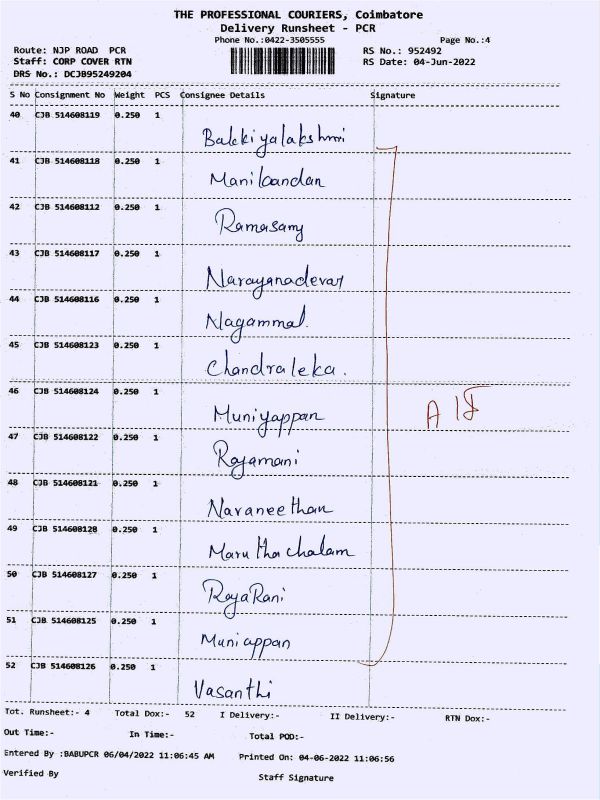 THE PROFESSIONAL COURIERS, Coimbatore
Delivery Runsheet - PCR
Phone No.:0422-3505555 Page No.:4
Route: NJP ROAD PCR RS No.: 952492
Staff: CORP COVER RTN RS Date: 04-Jun-2022
DRS No.: DCJB95249204
S No Consignment No Weight PCS Consignee Details Signature
40 CJB 514608119 0.250 1
Bakkiyalakshmi
41 CJB 514608118 0.250 1
Manikandan
42 CJB 514608112 0.250 1
Ramasamy
43 CJB 514608117 0.250 1
Narayanadevar
44 CJB 514608116 0.250 1
Nagammal.
45 CJB 514608123 0.250 1
Chandraleka.
46 CJB 514608124 0.250 1
Muniyappan
47 CJB 514608122 0.250 1
Rajamani
48 CJB 514608121 0.250 1
Navaneethan
49 CJB 514608128 0.250 1
Maruthachalam
50 CJB 514608127 0.250 1
RajaRani
51 CJB 514608125 0.250 1
Muniappan
52 CJB 514608126 0.250 1
Vasanthi
Tot. Runsheet:- 4 Total Dox:- 52 I Delivery:- II Delivery:- RTN Dox:-
Out Time:- In Time:- Total POD:-
Entered By :BABUPCR 06/04/2022 11:06:45 AM Printed On: 04-06-2022 11:06:56
Verified By Staff Signature